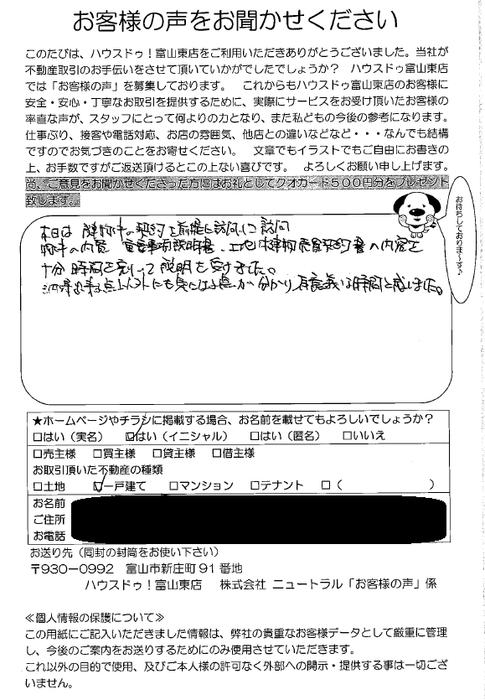 お客様の声をお聞かせください
このたびは、ハウスドゥ！富山東店をご利用いただきありがとうございました。当社が
不動産取引のお手伝いをさせて頂いていかがでしたでしょうか？　ハウスドゥ富山東店
では「お客様の声」を募集しております。　これからもハウスドゥ富山東店のお客様に
安全・安心・丁寧なお取引を提供するために、実際にサービスをお受け頂いたお客様の
率直な声が、スタッフにとって何よりの力となり、また私どもの今後の参考になります。
仕事ぶり、接客や電話対応、お店の雰囲気、他店との違いなどなど・・・なんでも結構
ですのでお気づきのことをお寄せください。　文章でもイラストでもご自由にお書きの
上、お手数ですがご返送頂けるとこの上ない喜びです。　よろしくお願い申し上げます。
尚、ご意見をお聞かせくださった方にはお礼としてクオカード５００円分をプレゼント
致します。
お待ちしておりま～す♪
本日は 物件の契約を前提に訪問
物件の内容 重要事項説明書、土地建物売買契約書の内容を
十分時間を割って説明を受けました。
分かり 有意義な時間と感じました。
★ホームページやチラシに掲載する場合、お名前を載せてもよろしいでしょうか？
□はい（実名）　☑はい（イニシャル）　□はい（匿名）　□いいえ
□売主様　□買主様　□貸主様　□借主様
お取引頂いた不動産の種類
□土地　☑一戸建て　□マンション　□テナント　□（　　　　　）
お名前
ご住所
お電話
お送り先（同封の封筒をお使い下さい）
〒930―0992　富山市新庄町９１番地
ハウスドゥ！富山東店　株式会社 ニュートラル「お客様の声」係
≪個人情報の保護について≫
この用紙にご記入いただきました情報は、弊社の貴重なお客様データとして厳重に管理
し、今後のご案内をお送りするためにのみ使用させていただきます。
これ以外の目的で使用、及びご本人様の許可なく外部への開示・提供する事は一切ござ
いません。